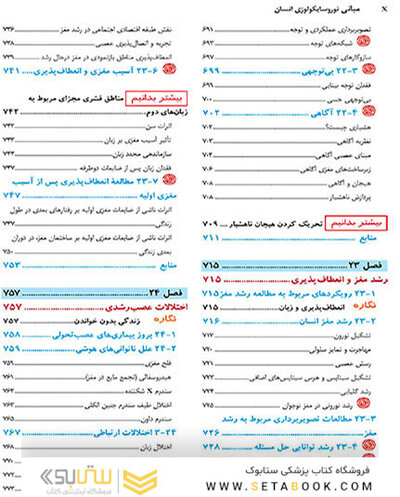 X مبانی نوروسایکولوژی انسان
تصویربرداری عملکردی و توجه ۶۹۱
شبکه‌های توجه ۶۹۳
۲۲-۳ بی‌توجهی ۶۹۹
فقدان توجه بینایی ۶۹۹
بی‌توجهی حسی ۷۰۰
۲۲-۴ آگاهی ۷۰۲
هشیاری چیست؟ ۷۰۲
نظریه آگاهی ۷۰۳
مبنای عصبی آگاهی
زیرساخت‌های مغزی آگاهی
هیجان و آگاهی
پردازش ناهشیار ۷۰۸
بیشتر بدانیم تحریک کردن هیجان ناهشیار ۷۰۹
منابع ۷۱۱
فصل ۲۳ ۷۱۵
رشد مغز و انعطاف‌پذیری ۷۱۵
۲۳-۱ رویکردهای مربوط به مطالعه رشد مغز ۷۱۵
نگاره انعطاف‌پذیری و زبان ۷۱۵
۲۳-۲ رشد مغز انسان ۷۱۶
تشکیل نورون ۷۱۷
مهاجرت و تمایز سلولی
رسش عصبی
تشکیل سیناپس و هرس سیناپس‌های اضافی
رشد گلیایی
رشد نورونی در مغز نوجوان ۷۲۵
۲۳-۳ مطالعات تصویربرداری مربوط به رشد
مغز ۷۲۶
۲۳-۴ رشد توانایی حل مسئله ۷۲۸
نقش طبقه اقتصادی اجتماعی در رشد مغز ۷۳۶
تجربه و اتصال‌پذیری عصبی ۷۳۸
انعطاف‌پذیری نقشه‌های بازنمودی در مغز درحال رشد ۷۳۹
۲۳-۶ آسیب مغزی و انعطاف‌پذیری ۷۴۱
بیشتر بدانیم مناطق قشری مجزای مربوط به
زبان‌های دوم ۷۴۲
اثرات سن ۷۴۲
تأثیر آسیب مغزی بر زبان
سازماندهی مجدد زبان
فقدان زبان پس از ضایعات دوطرفه
۲۳-۷ مطالعهٔ انعطاف‌پذیری پس از آسیب
مغزی اولیه ۷۴۷
اثرات ناشی از ضایعات مغزی اولیه بر رفتارهای بعدی در طول
زندگی ۷۴۷
اثرات ناشی از ضایعات مغزی اولیه بر ساختمان مغز، در دوران
بعدی زندگی ۷۵۰
منابع ۷۵۳
فصل ۲۴ ۷۵۷
اختلالات عصب‌رشدی ۷۵۷
نگاره زندگی بدون خواندن ۷۵۷
۲۴-۱ بروز بیماری‌های عصب‌تحولی ۷۵۸
۲۴-۲ علل ناتوانی‌های هوشی ۷۵۹
فلج مغزی
هیدروسفالی (تجمع مایع در مغز)
سندرم X شکننده
اختلال طیف سندرم جنین الکلی
سندرم داون
۲۴-۳ اختلالات ارتباطی ۷۶۷
اختلال زبان ۷۶۸
۷۷۲
۷۷۳
ستابوک
فروشگاه اینترنتی کتاب
فروشگاه کتاب پزشکی ستابوک
WWW.SETABOOK.COM